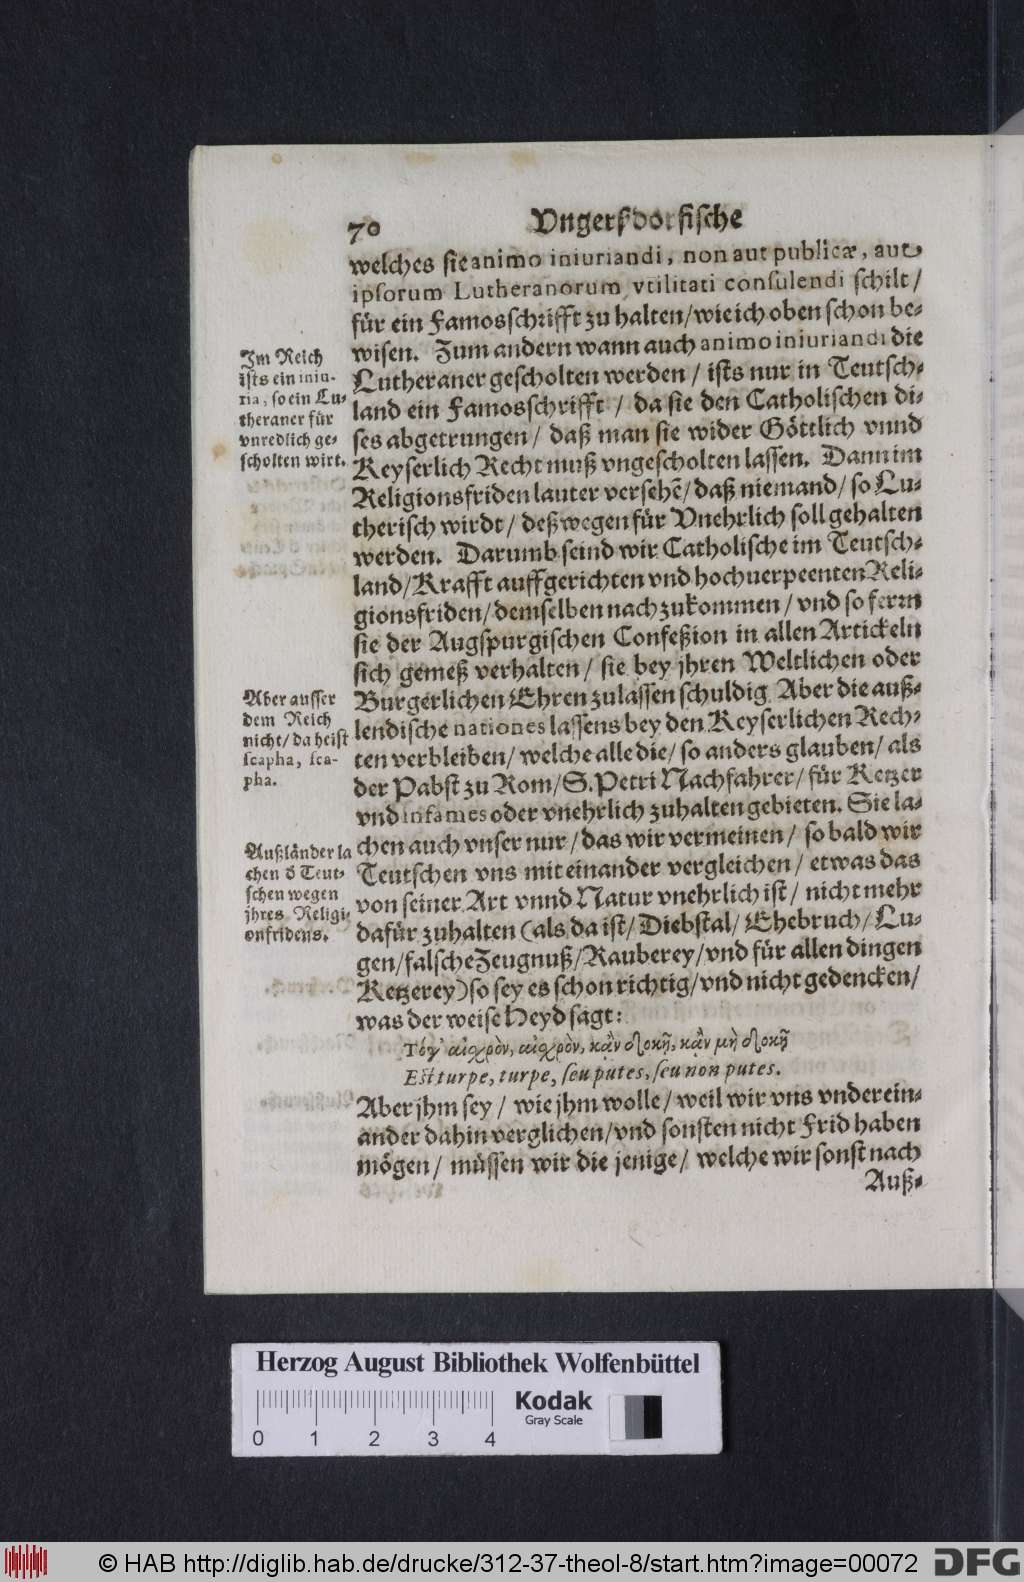 70 Vngerſdorfiſche
welches ſie animo iniuriandi, non aut publicæ, aut
ipſorum Lutheranorum vtilitati conſulendi ſchilt/
für ein Famosſchrifft zu halten/wie ich oben ſchon be-
wiſen. Zum andern wann auch animo iniuriandi die
Lutheraner geſcholten werden / iſts nur in Teutſch-
land ein Famosſchrifft / da ſie den Catholiſchen di-
ſes abgetrungen / daß man ſie wider Göttlich vnnd
Keyſerlich Recht muß vngeſcholten laſſen. Dann im
Religionsfriden lauter verſehẽ/ daß niemand/ ſo Lu-
theriſch wirdt / deßwegen für Vnehrlich ſoll gehalten
werden. Darumb ſeind wir Catholiſche im Teutſch-
land/Krafft auffgerichten vnd hochuerpeenten Reli-
gionsfriden/demſelben nachzukommen / vnd ſo ferrn
ſie der Augſpurgiſchen Confeßion in allen Artickeln
ſich gemeß verhalten / ſie bey jhren Weltlichen oder
Burgerlichen Ehren zulaſſen ſchuldig. Aber die auß-
lendiſche nationes laſſens bey den Keyſerlichen Rech-
ten verbleiben/ welche alle die/ ſo anders glauben/ als
der Pabſt zu Rom/S. Petri Nachfahrer/ für Ketzer
vnd infames oder vnehrlich zuhalten gebieten. Sie la-
chen auch vnſer nur / das wir vermeinen / ſo bald wir
Teutſchen vns mit einander vergleichen / etwas das
von ſeiner Art vnnd Natur vnehrlich iſt / nicht mehr
dafür zuhalten (als da iſt/ Diebſtal/ Ehebruch/ Lu-
gen/falſche Zeugnuß/Rauberey/vnd für allen dingen
Ketzerey) ſo ſey es ſchon richtig/vnd nicht gedencken/
was der weiſe Heyd ſagt:
Τόγ' αἰσχρὸν, αἰσχρὸν, κᾂν δοκῇ, κᾂν μὴ δοκῇ
Eſt turpe, turpe, ſeu putes, ſeu non putes.
Aber jhm ſey / wie jhm wolle/ weil wir vns vnderein-
ander dahin verglichen/vnd ſonſten nicht Frid haben
mögen / müſſen wir die jenige/ welche wir ſonſt nach
Auß-
Im Reich
iſts ein iniu-
ria, ſo ein Lu-
theraner für
vnredlich ge-
ſcholten wirt.
Aber auſſer
dem Reich
nicht/ da heiſt
ſcapha, ſca-
pha.
Außländer la
chen d' Teut-
ſchen wegen
jhres Religi-
onfridens.
Herzog August Bibliothek Wolfenbüttel
Kodak
Gray Scale
0 1 2 3 4
© HAB http://diglib.hab.de/drucke/312-37-theol-8/start.htm?image=00072
DFG